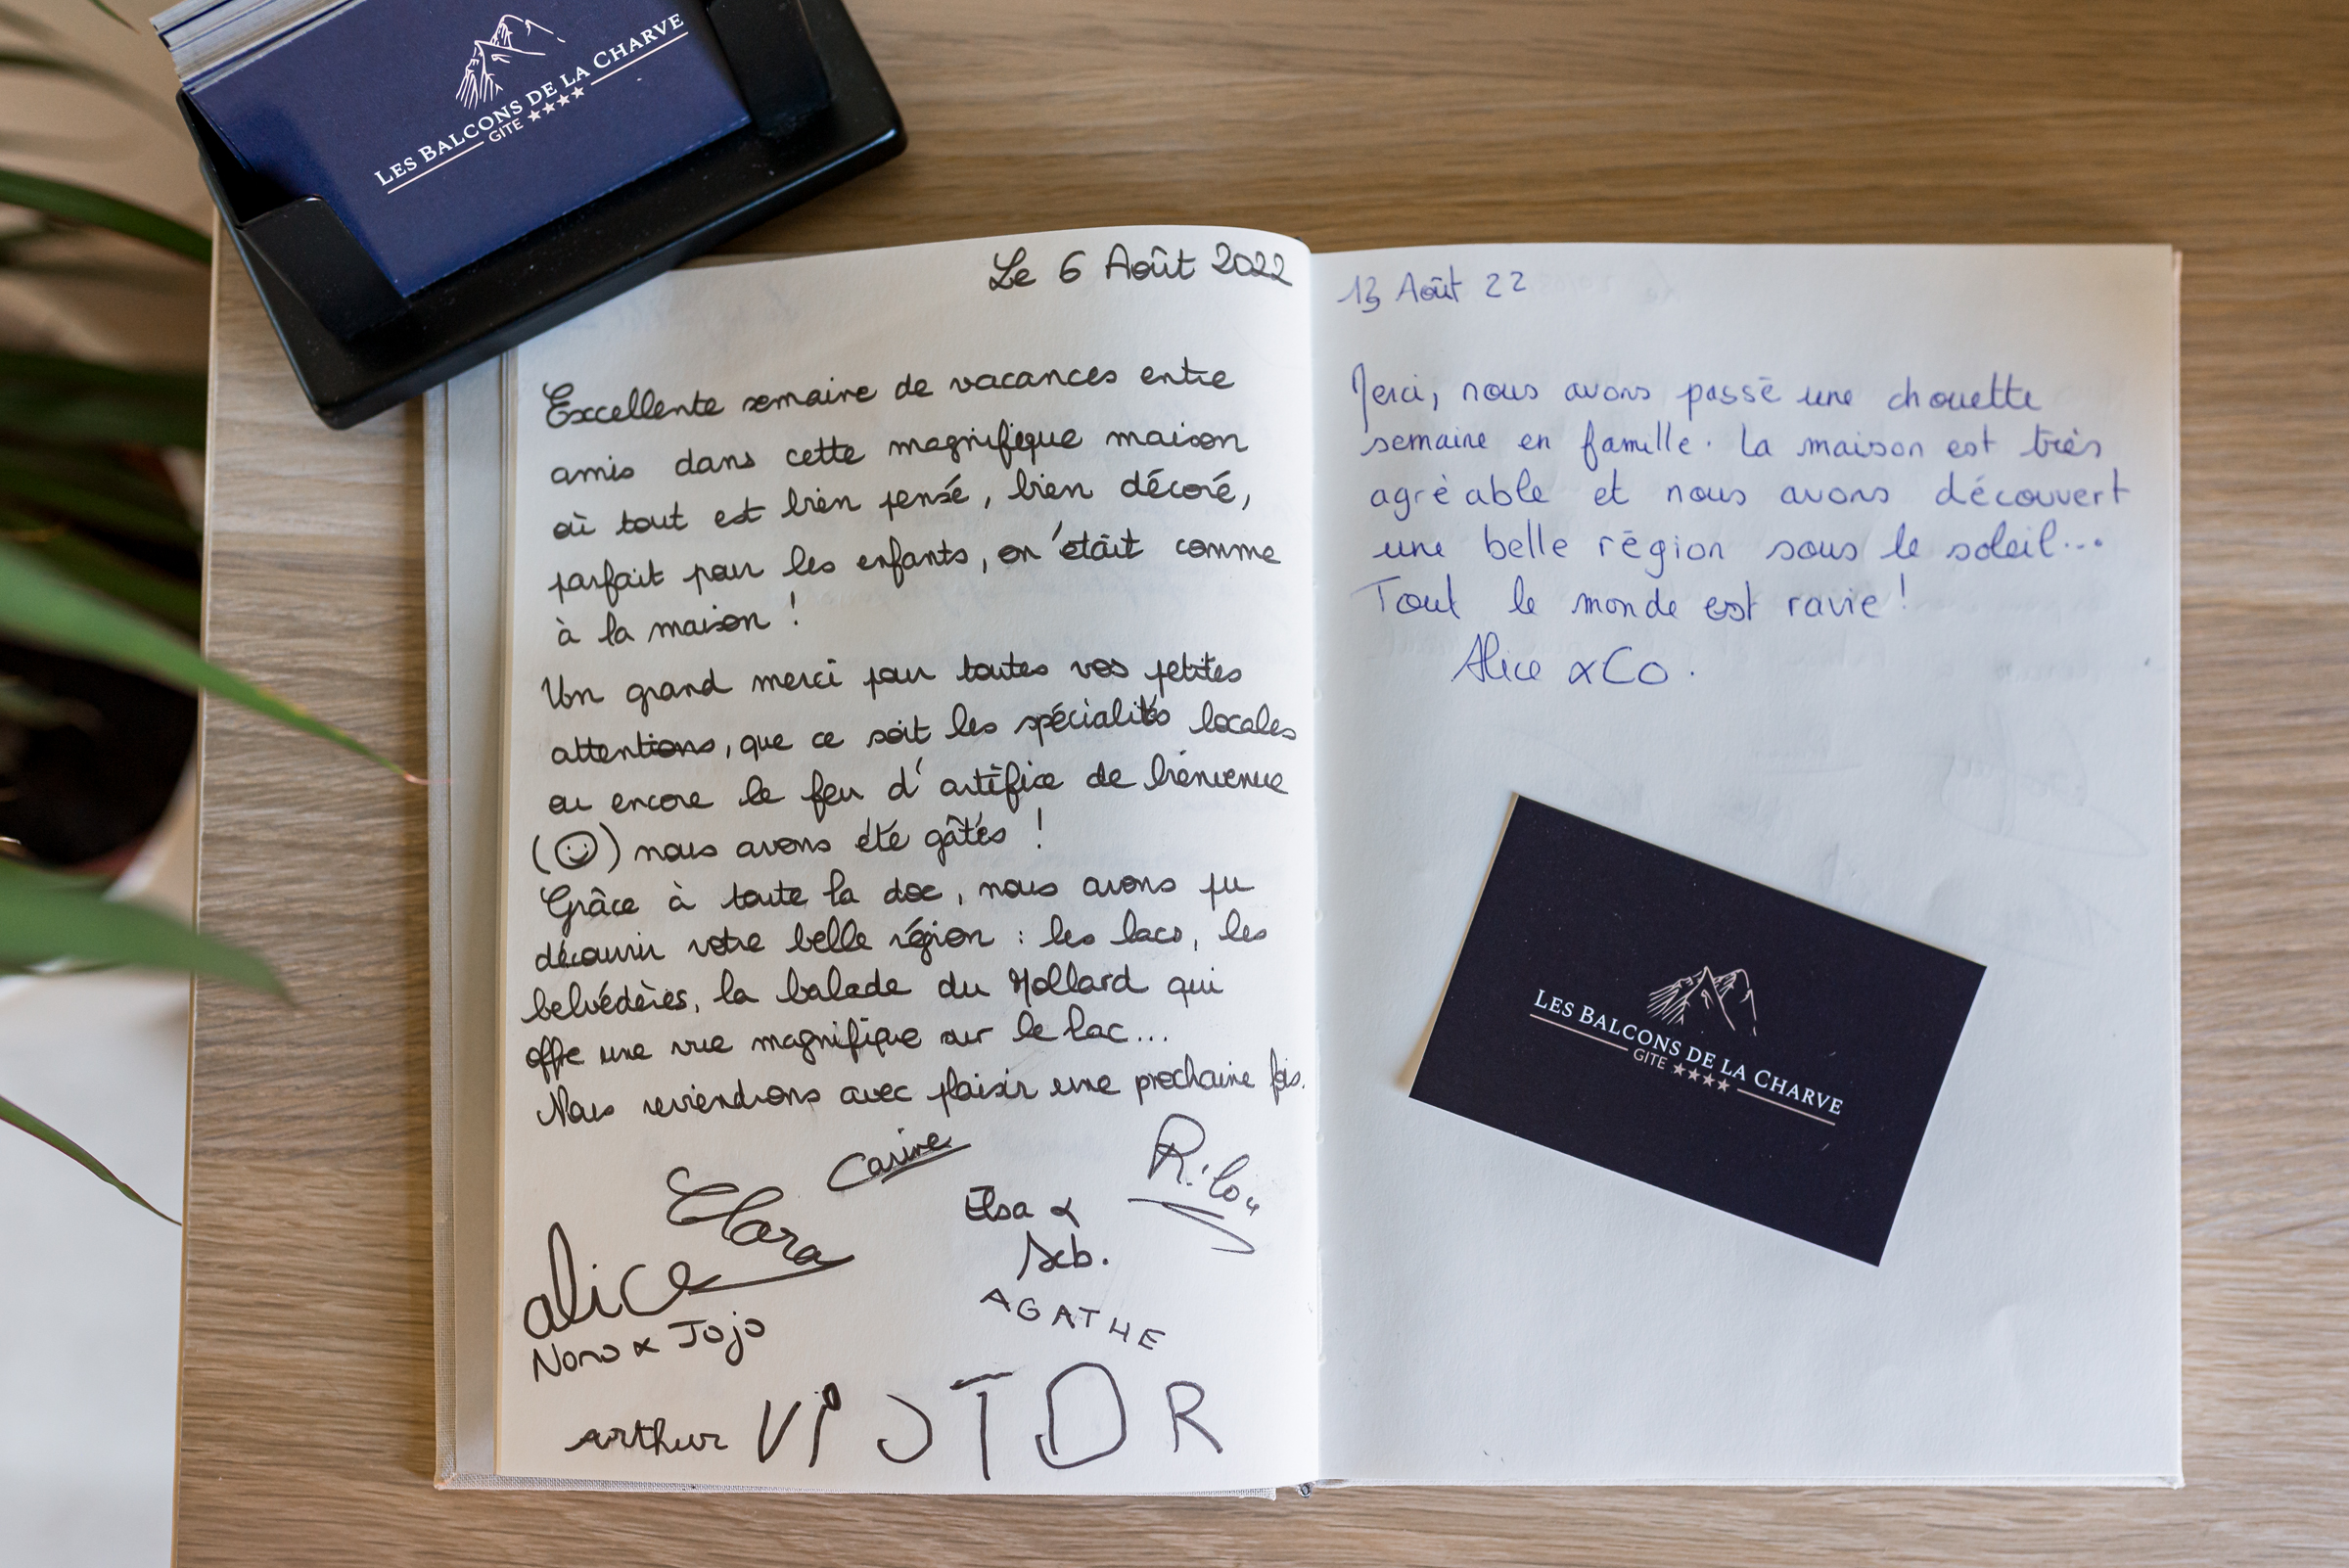 LES BALCONS DE LA CHARVE
GITE ★★★★
Le 6 Août 2022
Excellente semaine de vacances entre
amis dans cette magnifique maison
où tout est bien pensé, bien décoré,
parfait pour les enfants, on était comme
à la maison !
Un grand merci pour toutes vos petites
attentions, que ce soit les spécialités locales
ou encore le feu d'artifice de bienvenue
(☺) nous avons été gâtés !
Grâce à toute la doc, nous avons pu
découvrir votre belle région : les lacs, les
belvédères, la balade du Mollard qui
offre une vue magnifique sur le lac...
Nous reviendrons avec plaisir une prochaine fois.
Carine
Clara
Rilou
Elsa &
Seb.
alice
AGATHE
Nono & Jojo
arthur VICTOR
13 Août 22
Merci, nous avons passé une chouette
semaine en famille. La maison est très
agréable et nous avons découvert
une belle région sous le soleil...
Tout le monde est ravie !
Alice & Co.
LES BALCONS DE LA CHARVE
GITE ★★★★